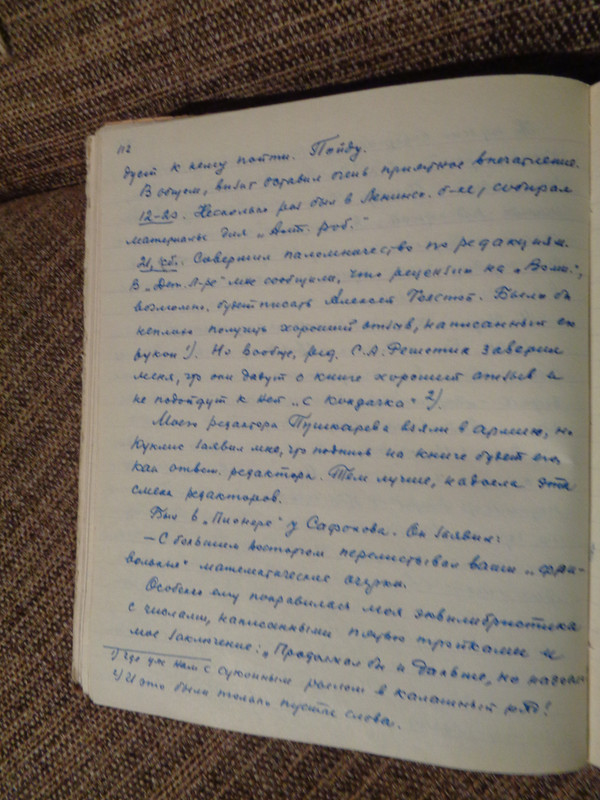 112
дует к нему пойти. Пойду.
В общем, визит оставил очень приятное впечатление.
12-20. Несколько раз был в Ленинск. б-ке, собирал
материалы для „Алт. роб."
21, сб. Совершил паломничество по редакциям.
В „Дет. л-ре" мне сообщили, что рецензию на „Волш.",
возможно, будет писать Алексей Толстой. Было бы
неплохо получить хороший отзыв, написанный его
рукой ¹). Но вообще, ред. С.А. заверил
меня, что они дадут о книге хороший отзыв и
не подойдут к ней „с кондачка" ²).
Моего редактора Пушкарева взяли в армию, но
Куклис заявил мне, что подпись на книге будет его,
как ответ. редактора. Тем лучше, надоела эта
смена редакторов.
Был в „Пионере" у Сафонова. Он заявил:
— С большим восторгом перелистывал ваши „фри-
вольные" математические очерки.
Особенно ему понравилась моя эквилибристика
с числами, написанными пятью тройками и
мое заключение: „Продолжал бы и дальше, но
¹) Где уж нам с суконным рылом в калашный ряд!
²) И это были только пустые слова.